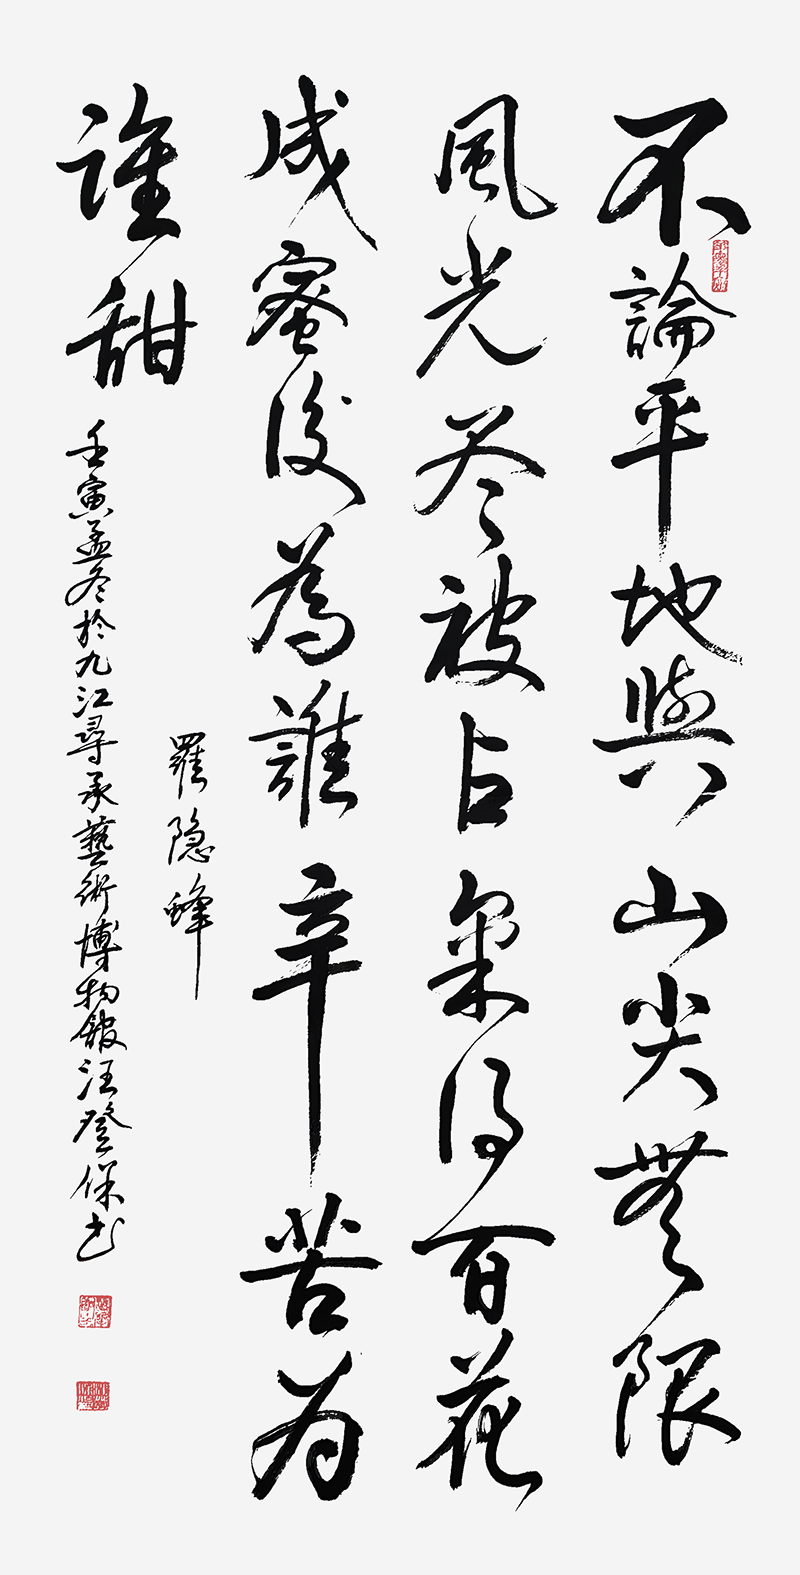 不論平地與山尖無限
風光尽被占采得百花
成蜜後為誰辛苦为
誰甜
羅隐蜂
壬寅孟冬於九江尋承藝術博物館汪登保书